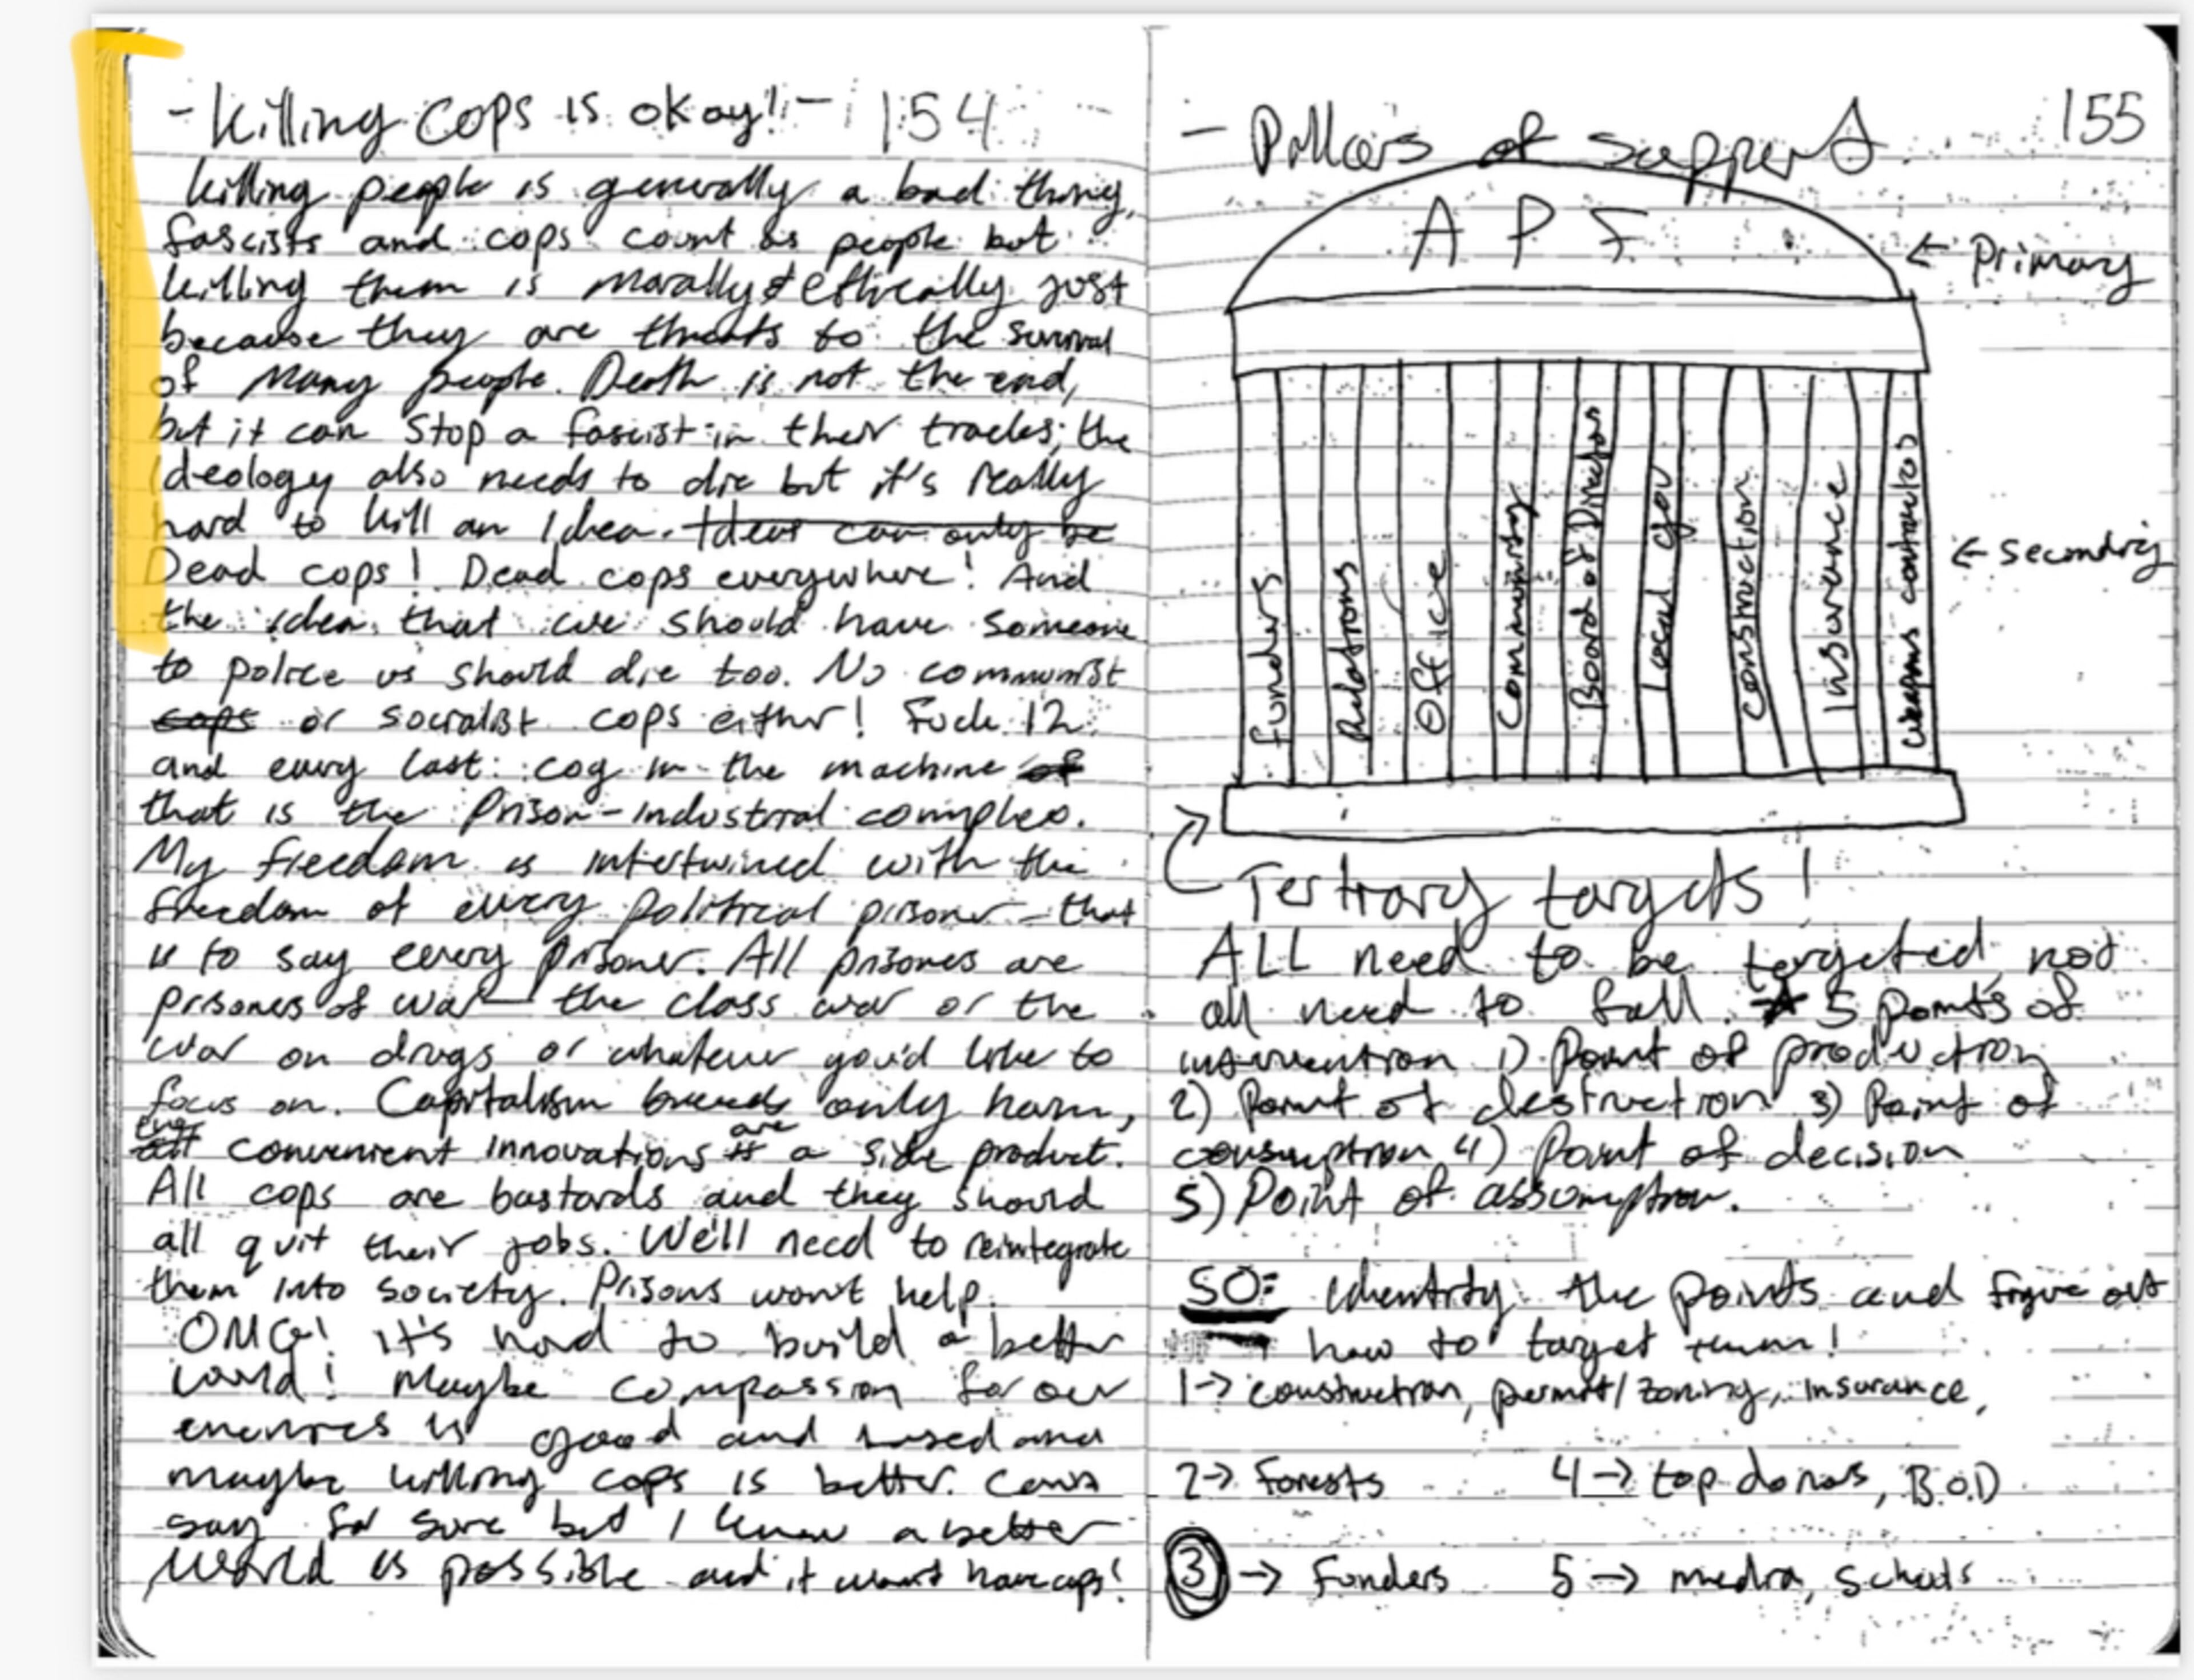 - Killing cops is okay! - 154
Killing people is generally a bad thing,
fascists and cops count as people but
killing them is morally & ethically just
because they are threats to the survival
of many people. Death is not the end,
but it can stop a fascist in their tracks; the
ideology also needs to die but it's really
hard to kill an idea. Ideas can only be
Dead cops! Dead cops everywhere! And
the idea that we should have someone
to police us should die too. No communist
cops or socialist cops either! Fuck 12
and every last cog in the machine of
that is the Prison-industrial complex.
My freedom is intertwined with the
freedom of every political prisoner - that
is to say every prisoner. All prisoners are
prisoners of war - the class war or the
war on drugs or whatever you'd like to
focus on. Capitalism breeds only harm,
the convenient innovations are a side product.
All cops are bastards and they should
all quit their jobs. We'll need to reintegrate
them into society. Prisons won't help.
OMG! it's hard to build a better
world! Maybe compassion for our
enemies is good and based and
maybe killing cops is better. Can't
say for sure but I know a better
world is possible and it won't have cops!
- Pillars of support 155
APF
← Primary
Funders
Relations
Office
Community
Board of Directors
Local gov
construction
Insurance
weapons contractors
← secondary
Tertiary targets!
ALL need to be targeted, not
all need to fall. 5 points of
intervention 1) Point of production
2) Point of destruction 3) Point of
consumption 4) Point of decision
5) Point of assumption.
SO: identity the points and figure out
how to target them!
1→ construction, permit/zoning, insurance,
2→ Forests 4→ top donors, B.O.D
3→ Funders 5→ media, schools